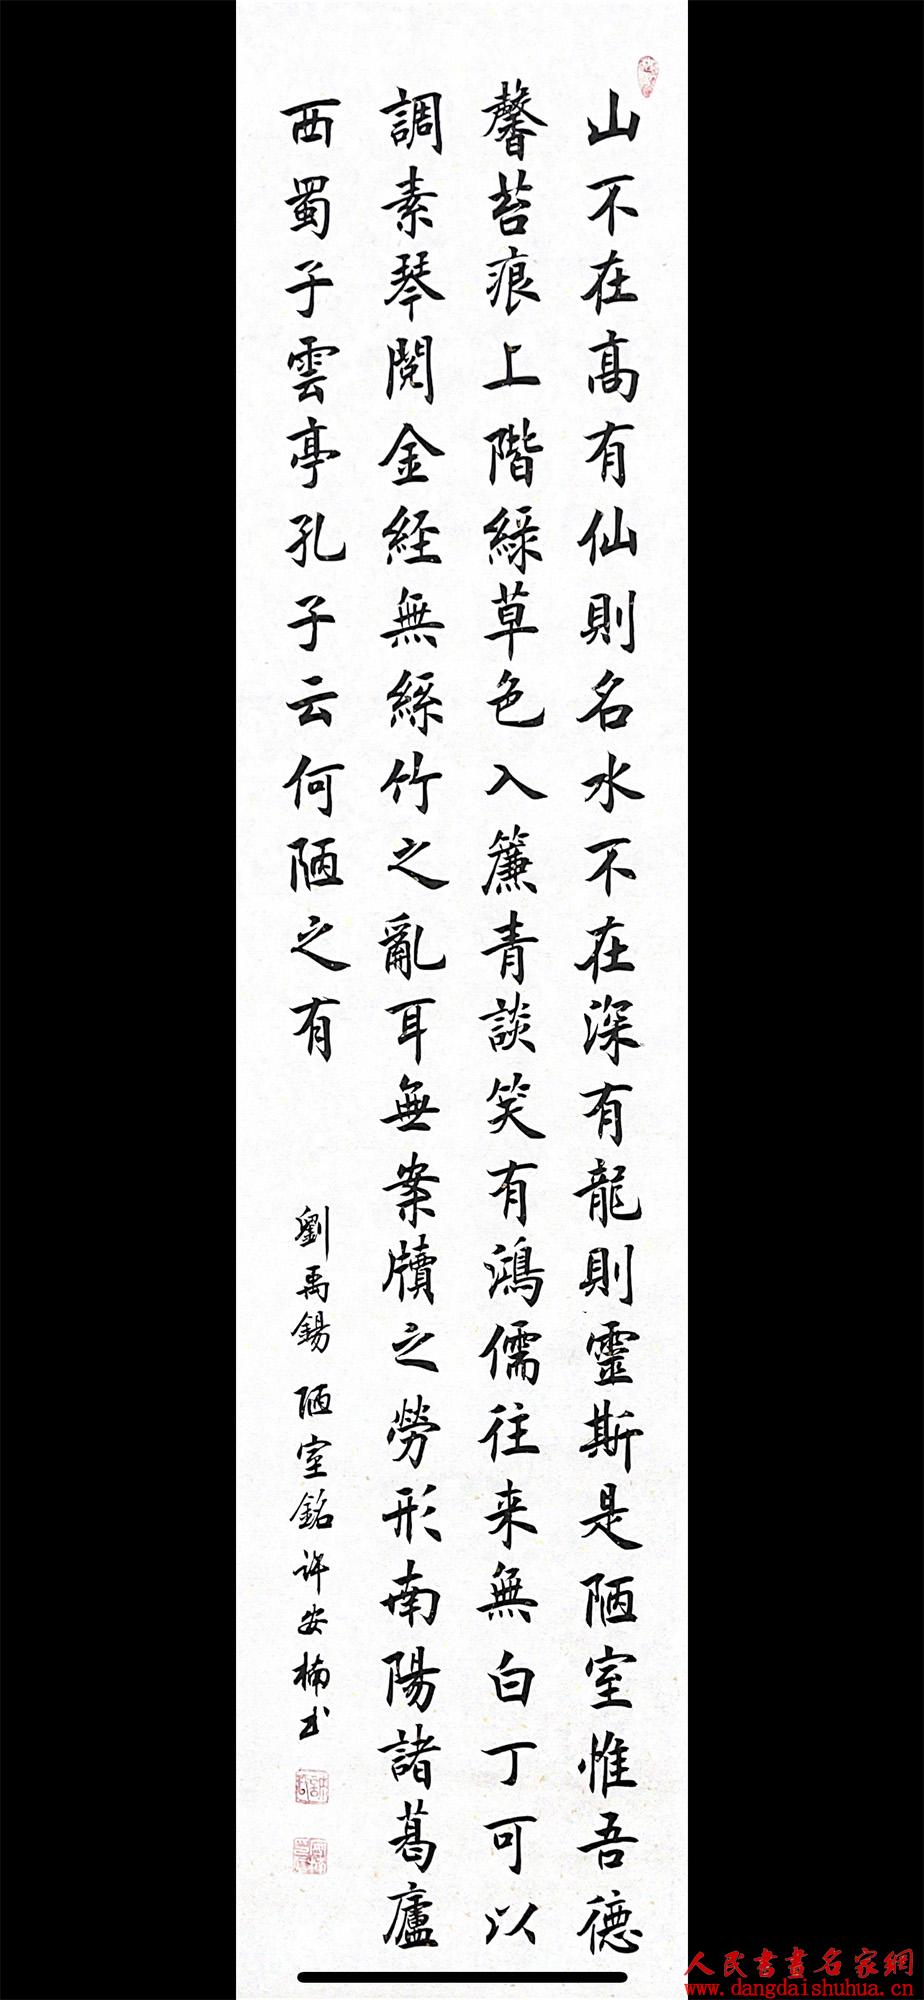 山不在高有仙則名水不在深有龍則靈斯是陋室惟吾德
馨苔痕上階緑草色入簾青談笑有鴻儒往来無白丁可以
調素琴閱金経無絲竹之亂耳無案牘之勞形南陽諸葛廬
西蜀子雲亭孔子云何陋之有
劉禹錫 陋室銘 许安楠书
人民書畫名家網
www.dangdaishuhua.com.cn